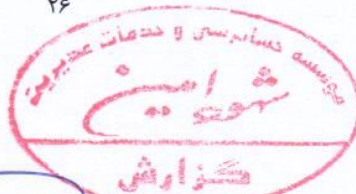 ۲۶
موسسه حسابرسی و خدمات مدیریت
شهود امین
گزارش